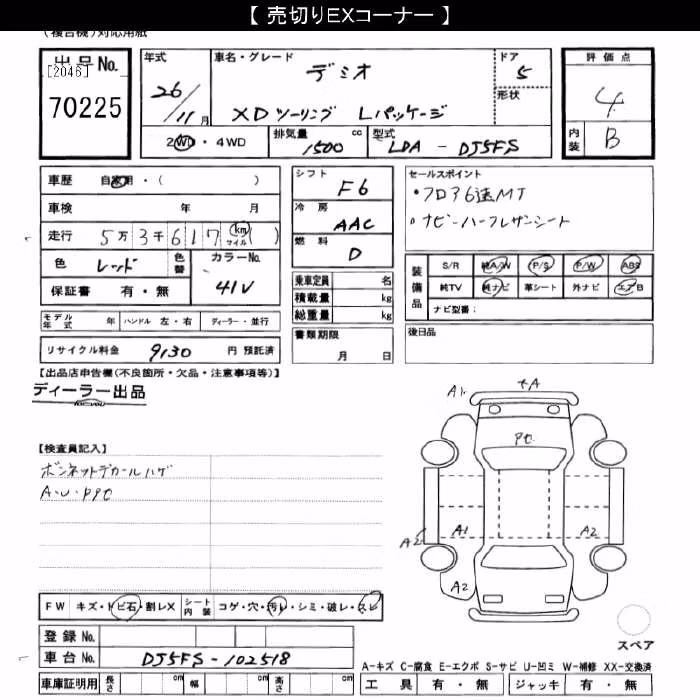 【 売切りEXコーナー 】
(複合機)対応用紙
出品No.
[2046]
70225
年式
26/11月
車名・グレード
デミオ
XDツーリング Lパッケージ
ドア
5
形状
評価点
4
内装
B
2WD・4WD
排気量
1500cc
型式
LDA - DJ5FS
車歴 自家用・( )
車検 年 月
走行 5万3千617 km マイル ( )
色 レッド
色替
カラーNo.
41V
保証書 有・無
シフト
F6
冷房
AAC
燃料
D
乗車定員 名
積載量 kg
総重量 kg
セールスポイント
・フロア6速MT
・ナビ・ハーフレザーシート
装備品
S/R 純A/W P/S P/W ABS
純TV 純ナビ 革シート 外ナビ エアB
ナビ型番:
モデル年式 年 ハンドル 左・右 ディーラー・並行
リサイクル料金 9130 円 預託済
書類期限
月 日
後日品
【出品店申告欄(不良箇所・欠品・注意事項等)】
ディーラー出品
【検査員記入】
ボンネットデカールハゲ
A・U・Pテセ
A1
A
Pセ
A2
A1
A2
A2
スペア
FW キズ・トビ石・割レX
シート内装 コゲ・穴・汚レ・シミ・破レ・スレ
登録No.
車台No. DJ5FS-102518
車庫証明用 長さ cm 幅 cm 高さ cm
A-キズ C-腐食 E-エクボ S-サビ U-凹ミ W-補修 XX-交換済
工具 有・無 ジャッキ 有・無